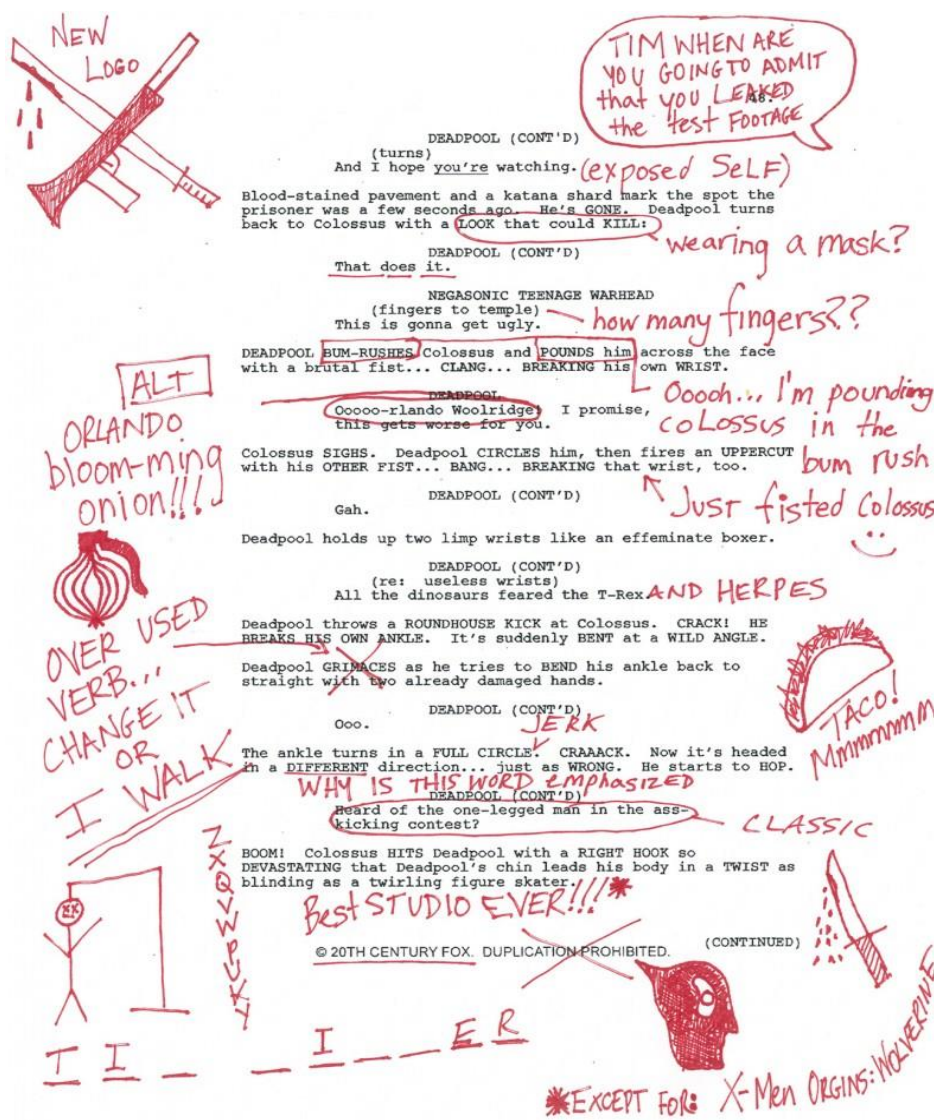 NEW
LOGO
TIM WHEN ARE
YOU GOING TO ADMIT
that you LEAKED
the test FOOTAGE
48.
DEADPOOL (CONT'D)
(turns)
And I hope you're watching. (exposed SELF)
Blood-stained pavement and a katana shard mark the spot the
prisoner was a few seconds ago. He's GONE. Deadpool turns
back to Colossus with a LOOK that could KILL:
wearing a mask?
DEADPOOL (CONT'D)
That does it.
NEGASONIC TEENAGE WARHEAD
(fingers to temple)
how many fingers??
This is gonna get ugly.
DEADPOOL BUM-RUSHES Colossus and POUNDS him across the face
with a brutal fist... CLANG... BREAKING his own WRIST.
Ooooh... I'm pounding
coLossus in the
bum rush
ALT
ORLANDO
bloom-ming
onion!!!
DEADPOOL
Ooooo-rlando Woolridge! I promise,
this gets worse for you.
Colossus SIGHS. Deadpool CIRCLES him, then fires an UPPERCUT
with his OTHER FIST... BANG... BREAKING that wrist, too.
Just fisted Colossus
DEADPOOL (CONT'D)
Gah.
Deadpool holds up two limp wrists like an effeminate boxer.
DEADPOOL (CONT'D)
(re: useless wrists)
All the dinosaurs feared the T-Rex. AND HERPES
Deadpool throws a ROUNDHOUSE KICK at Colossus. CRACK! HE
BREAKS HIS OWN ANKLE. It's suddenly BENT at a WILD ANGLE.
OVER USED
VERB...
CHANGE IT
OR
I WALK
Deadpool GRIMACES as he tries to BEND his ankle back to
straight with two already damaged hands.
TACO!
Mmmmmmm
DEADPOOL (CONT'D)
Ooo.
JERK
The ankle turns in a FULL CIRCLE. CRAAACK. Now it's headed
in a DIFFERENT direction... just as WRONG. He starts to HOP.
WHY IS THIS WORD emphasized
DEADPOOL (CONT'D)
Heard of the one-legged man in the ass-
kicking contest?
CLASSIC
BOOM! Colossus HITS Deadpool with a RIGHT HOOK so
DEVASTATING that Deadpool's chin leads his body in a TWIST as
blinding as a twirling figure skater.
Best STUDIO EVER!!!*
(CONTINUED)
© 20TH CENTURY FOX. DUPLICATION PROHIBITED.
T I _ _ I _ _ E R
*EXCEPT FOR: X-Men ORGINS: WOLVERINE